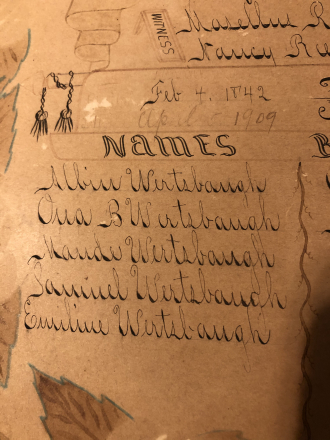 WITNESS
Marellus R
Nancy Ra
Feb 4, 1842
April 1909
NAMES
B
Albin Wertsbaugh
Ona B Wertsbaugh
Maude Wertsbaugh
Samuel Wertsbaugh
Emiline Wertsbaugh